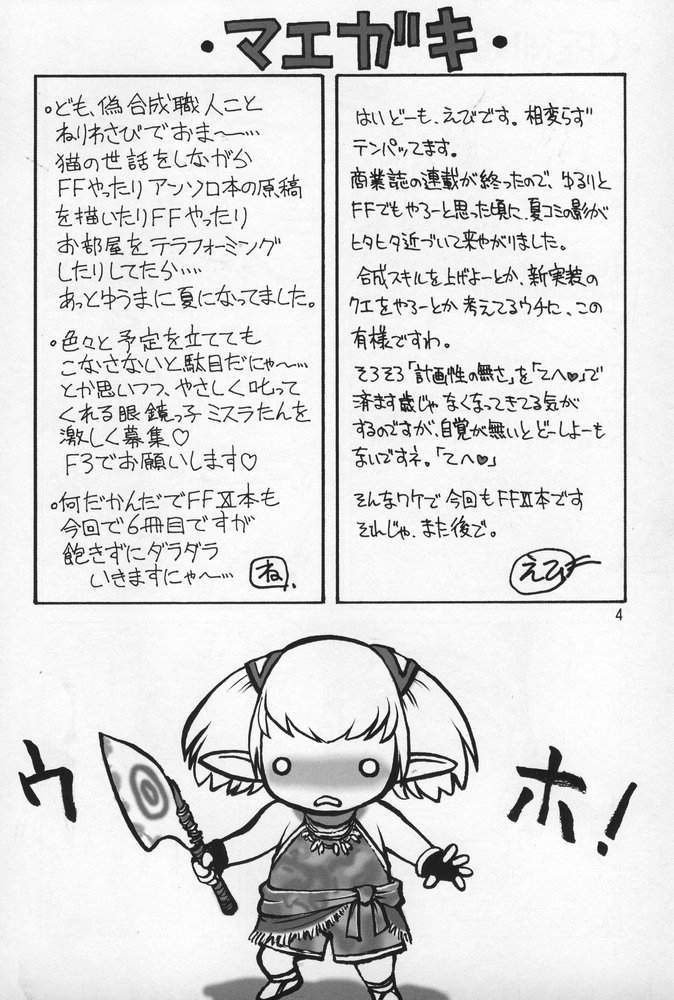 ・マエガキ・
・ども、偽合成職人こと
ねりわさびでおま〜…
猫の世話をしながら
FFやったりアンソロ本の原稿
を描いたりFFやったり
お部屋をテラフォーミング
したりしてたら‥‥
あっとゆうまに夏になってました。
・色々と予定を立てても
こなさないと駄目だにゃ〜…
とか思いつつ、やさしく叱って
くれる眼鏡っ子ミスラたんを
激しく募集♡
F3でお願いします♡
・何だかんだでFFⅪ本も
今回で6冊目ですが
飽きずにダラダラ
いきますにゃ〜…
ね.
はいどーも、えびです。相変らず
テンパッてます。
商業誌の連載が終ったので、ゆるりと
FFでもやろーと思った頃に、夏コミの影が
ヒタヒタ近づいて来やがりました。
合成スキルを上げよーとか、新実装の
クエをやろーとか考えてるウチに、この
有様ですわ。
そろそろ「計画性の無さ」を「てへ♥」で
済ます歳じゃなくなってきてる気が
するのですが、自覚が無いとどーしよーも
ないですネ。「てへ♥」
そんなワケで今回もFFⅪ本です
それじゃ、また後で。
えび
4
ウ
ホ！